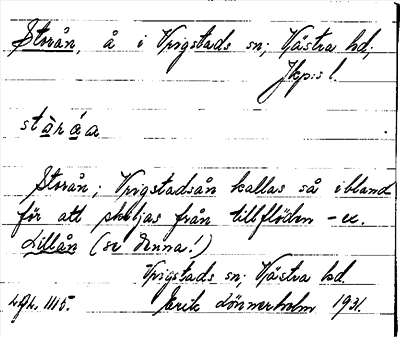 Storån, å i Vrigstads sn; Västra hd,
Jkp:s l.
stàráa
Storån; Vrigstadsån kallas så ibland
för att skiljas från tillflöden - ex.
Lillån (se denna!)
Vrigstads sn; Västra hd.
Erik Lönnerholm 1931.